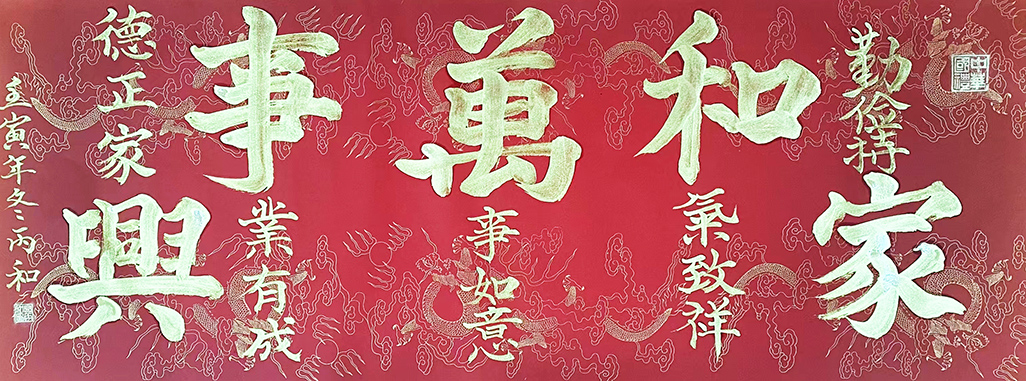 中華國禮
勤俭持家
和氣致祥
萬事如意
事業有成
德正家興
壬寅年冬丙和